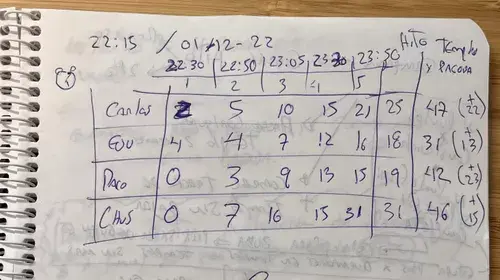 22:15 / 01-12-22
22:30 22:50 23:05 23:20 23:50 HITO Templo
1 2 3 4 5 y PAGODA
Carlos 2 5 10 15 21 25 47 (+22)
EDU 4 4 7 12 16 18 31 (+13)
PACO 0 3 9 13 15 19 42 (+23)
CHUS 0 7 16 15 31 31 46 (+15)